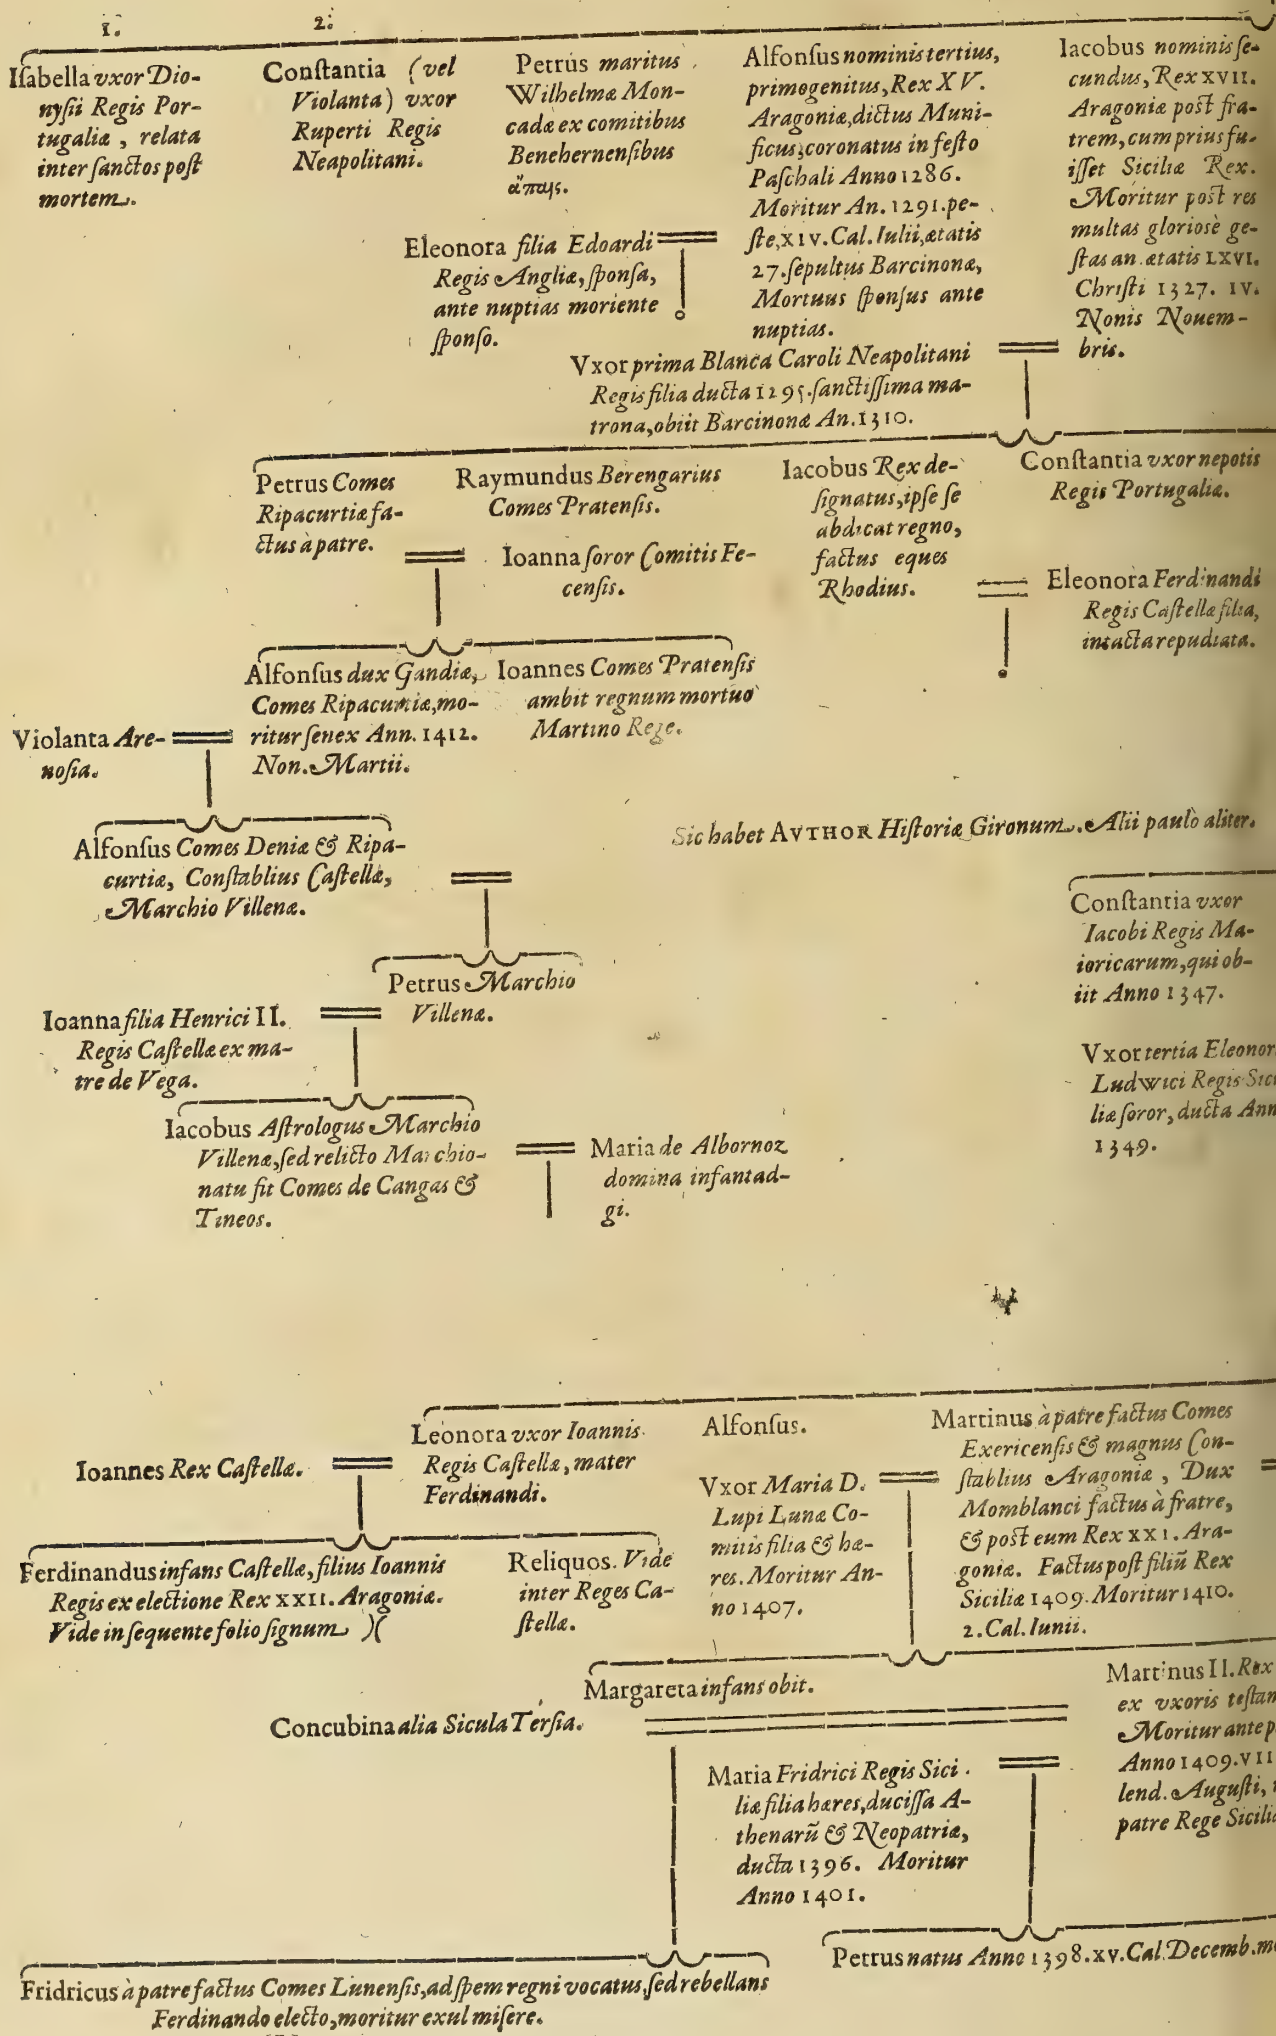 1.
2.
Iſabella vxor Dio-
nyſii Regis Por-
tugaliæ, relata
inter ſanctos poſt
mortem.
Conſtantia (vel
Violanta) vxor
Ruperti Regis
Neapolitani.
Petrus maritus
Wilhelmæ Mon-
cadæ ex comitibus
Benehernenſibus
ἄπαις.
Alfonſus nominis tertius,
primogenitus, Rex XV.
Aragoniæ, dictus Muni-
ficus, coronatus in feſto
Paſchali Anno 1286.
Moritur An. 1291. pe-
ſte, XIV. Cal. Iulii, ætatis
27. ſepultus Barcinonæ,
Mortuus ſponſus ante
nuptias.
Iacobus nominis ſe-
cundus, Rex XVII.
Aragoniæ poſt fra-
trem, cum prius fu-
iſſet Siciliæ Rex.
Moritur poſt res
multas glorioſè ge-
ſtas an. ætatis LXVI.
Chriſti 1327. IV.
Nonis Nouem-
bris.
Eleonora filia Edoardi
Regis Angliæ, ſponſa,
ante nuptias moriente
ſponſo.
Vxor prima Blanca Caroli Neapolitani
Regis filia ducta 1295. ſanctiſſima ma-
trona, obiit Barcinonæ An. 1310.
Petrus Comes
Ripacurtiæ fa-
ctus à patre.
Raymundus Berengarius
Comes Pratenſis.
Ioanna ſoror Comitis Fe-
cenſis.
Iacobus Rex de-
ſignatus, ipſe ſe
abdicat regno,
factus eques
Rhodius.
Conſtantia vxor nepotis
Regis Portugaliæ.
Eleonora Ferdinandi
Regis Caſtellæ filia,
intacta repudiata.
Alfonſus dux Gandiæ,
Comes Ripacurtiæ, mo-
ritur ſenex Ann. 1412.
Non. Martii.
Ioannes Comes Pratenſis
ambit regnum mortuo
Martino Rege.
Violanta Are-
noſia.
Alfonſus Comes Deniæ & Ripa-
curtiæ, Conſtablius Caſtellæ,
Marchio Villenæ.
Sic habet AVTHOR Hiſtoriæ Gironum. Alii paulò aliter.
Conſtantia vxor
Iacobi Regis Ma-
ioricarum, qui ob-
iit Anno 1347.
Petrus Marchio
Villenæ.
Ioanna filia Henrici II.
Regis Caſtellæ ex ma-
tre de Vega.
Vxor tertia Eleonor
Ludwici Regis Sici
liæ ſoror, ducta Ann
1349.
Iacobus Aſtrologus Marchio
Villenæ, ſed relicto Marchio-
natu fit Comes de Cangas &
Tineos.
Maria de Albornoz
domina infantad-
gi.
Leonora vxor Ioannis
Regis Caſtellæ, mater
Ferdinandi.
Ioannes Rex Caſtellæ.
Alfonſus.
Vxor Maria D.
Lupi Lunæ Co-
mitis filia & hæ-
res. Moritur An-
no 1407.
Martinus à patre factus Comes
Exericenſis & magnus Con-
ſtablius Aragoniæ, Dux
Momblanci factus à fratre,
& poſt eum Rex XXI. Ara-
goniæ. Factus poſt filiũ Rex
Siciliæ 1409. Moritur 1410.
2. Cal. Iunii.
Ferdinandus infans Caſtellæ, filius Ioannis
Regis ex electione Rex XXII. Aragoniæ.
Vide in ſequente folio ſignum )(
Reliquos. Vide
inter Reges Ca-
ſtellæ.
Margareta infans obit.
Concubina alia Sicula Terſia.
Martinus II. Rex
ex vxoris teſtam
Moritur ante p
Anno 1409. VII
lend. Auguſti,
patre Rege Sicilia
Maria Fridrici Regis Sici-
liæ filia hæres, duciſſa A-
thenarũ & Neopatriæ,
ducta 1396. Moritur
Anno 1401.
Petrus natus Anno 1398. XV. Cal. Decemb. mo
Fridricus à patre factus Comes Lunenſis, ad ſpem regni vocatus, ſed rebellans
Ferdinando electo, moritur exul miſere.